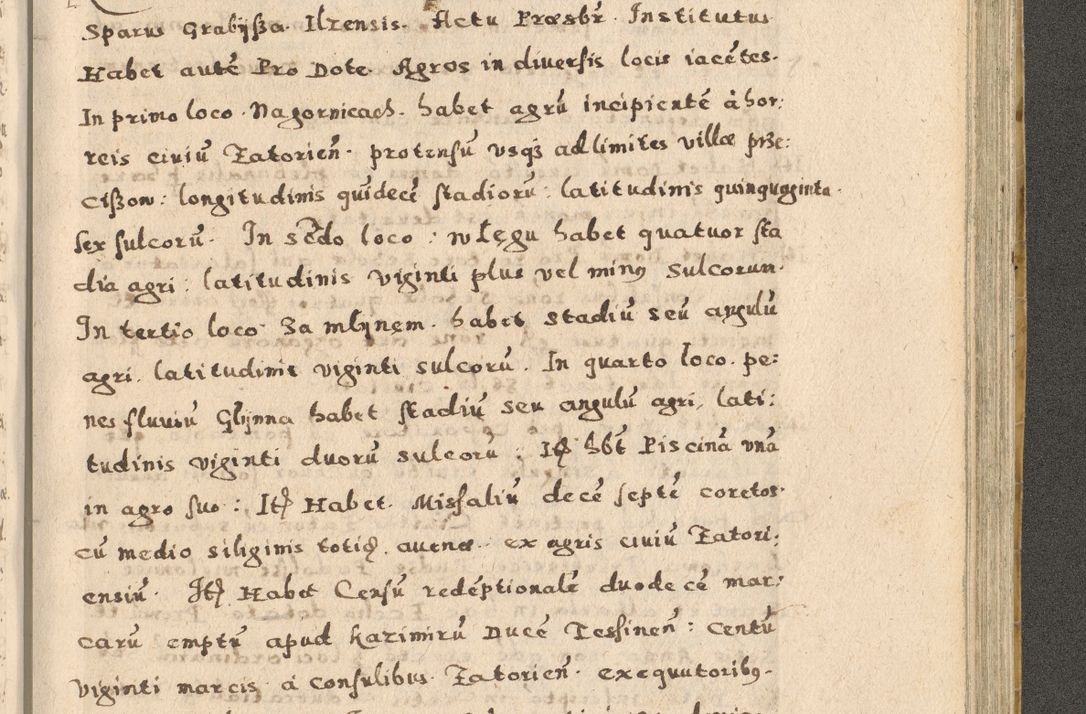 Sparus Grabÿßa. Ilzensis. Actu Præsbr̃. Institutus
Habet autē Pro Dote. Agros in diuersis locis iacētes.
In primo loco. Nagornicach. habet agrū incipientē à hor:
reis ciuiū Zatorień. protensū vsq3 ad limites villæ prze:
cißow: longitudinis quīdecē stadiorū: latitudinis quinquaginta.
sex sulcorū. In scdo loco: w Łęgu habet quatuor sta
dia agri: latitudinis viginti plus vel minus sulcorum.
In tertio loco Za mlÿnem. habet stadiū seu angulū
agri. latitudinis viginti sulcorū. In quarto loco. pe:
nes fluuiū Glÿnna habet stadiū seu angulū agri, lati:
tudinis viginti duorū sulcorū: Itē hēt Piscinā vnā
in agro suo: Itē Habet. Missaliū decē septē coretos.
cū medio siliginis totidē. auenæ. ex agris ciuiū Zatori:
ensiū. Itē Habet Censū redēptionalē duodecē mar:
carū emptū apud Kazimirū Ducē Tessineń: Centū
viginti marcis à Consulibus Zatorień. exequutoribus.